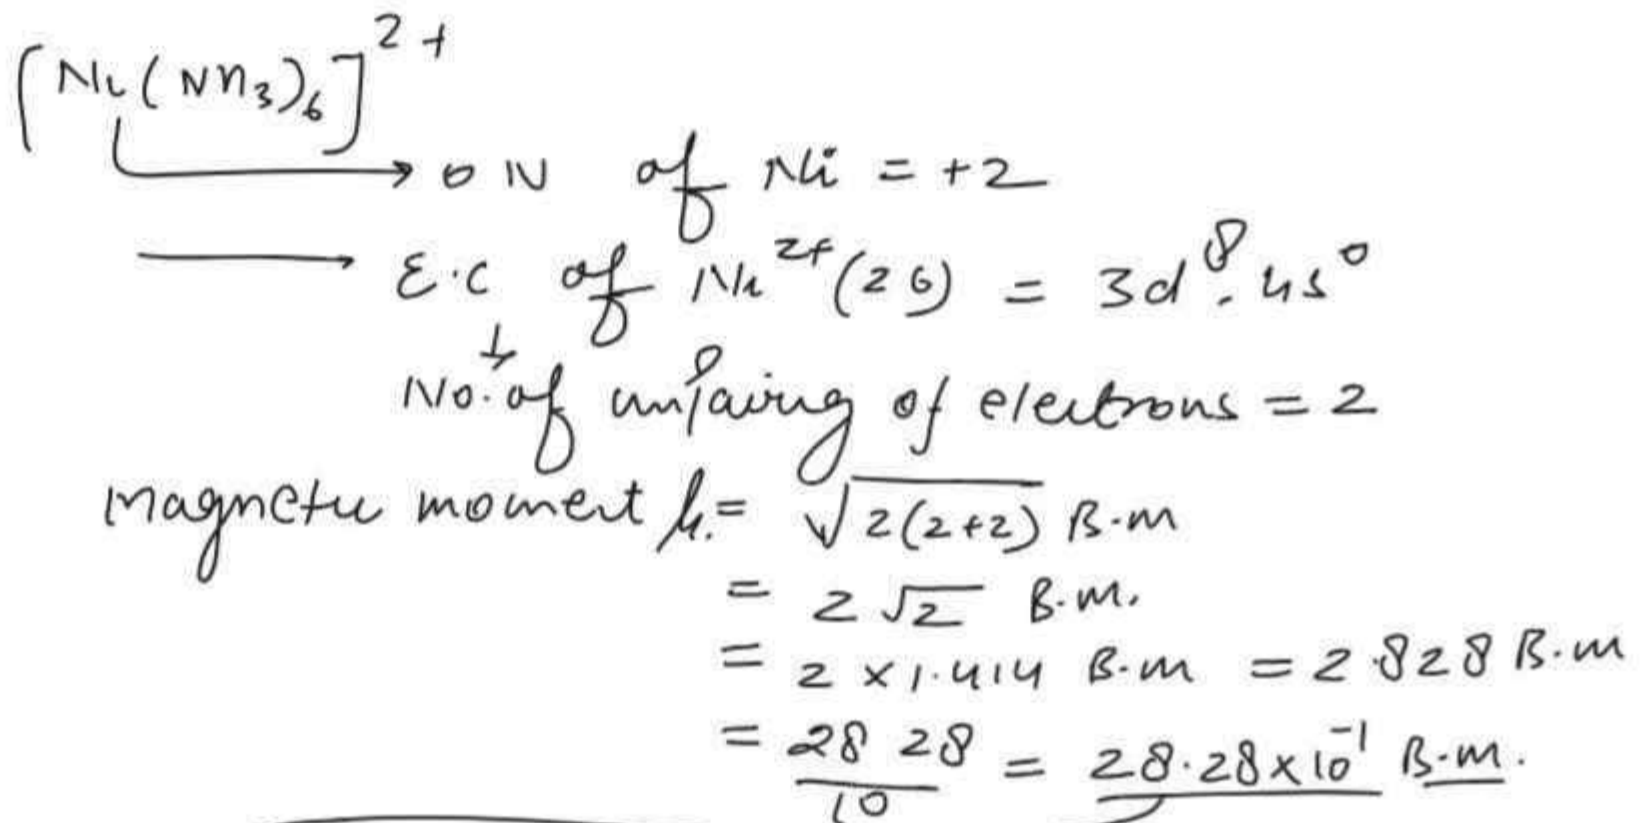 [Ni(NH3)6]^2+
→ O N of Ni = +2
→ E.C of Ni^2+ (26) = 3d^8. 4s^0
↓
No. of unpairing of electrons = 2
Magnetic moment μ. = √2(2+2) B.M
= 2√2 B.M.
= 2 × 1.414 B.M = 2.828 B.M
= 28 28/10 = 28.28×10^-1 B.M.